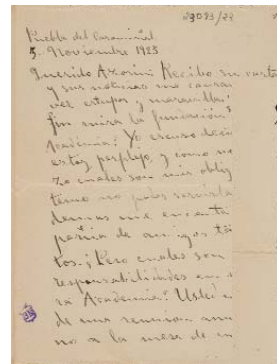 29083/22
Puebla del Caramiñal
5. Noviembre 1923
Querido Azorín: Recibo su carta
y sus noticias me causa
vez estupor y maravilla,
fin mira la fundacion
Academia? Yo escuso deci
estoy perplejo, y como no
zo cuales son mis oblig
temo no poder servirla
demas me encanta
pañia de amigos ta
tos. ¿Pero cuales son
responsabilidades en
ra Academia? Usted
de una reunion anu
no a la mesa de